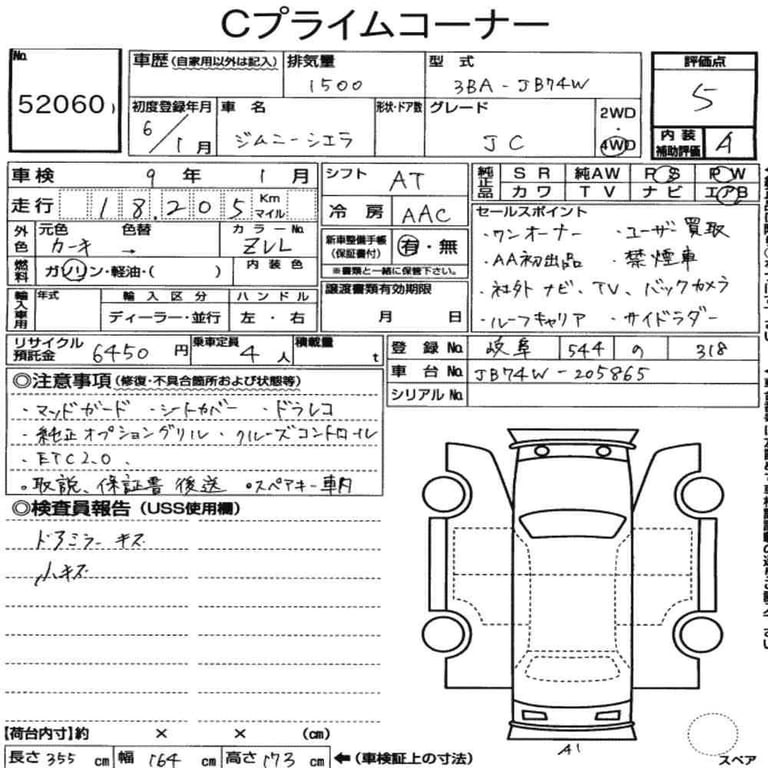 Cプライムコーナー
No.
52060
車歴 (自家用以外は記入)
排気量
1500
型式
3BA-JB74W
評価点
5
初度登録年月
6/1月
車名
ジムニーシエラ
形状・ドア数
グレード
JC
2WD
・
4WD
内装
補助評価
A
車検 9年 1月
シフト AT
純正品
SR 純AW PS PW
カワ TV ナビ エアB
走行 18,205 Km マイル
冷房 AAC
セールスポイント
・ワンオーナー ・ユーザー買取
・AA初出品 ・禁煙車
・社外ナビ、TV、バックカメラ
・ルーフキャリア ・サイドラダー
外色
元色 色替
カーキ →
カラーNo.
ZVL
新車整備手帳
(保証書付)
有・無
※書類と一緒に保管下さい。
燃料
ガソリン・軽油・( )
内装色
譲渡書類有効期限
月 日
輸入車用
年式
輸入区分
ハンドル
ディーラー・並行
左・右
リサイクル
預託金
6450円
乗車定員
4人
積載量
t
登録No. 岐阜 544 の 318
車台No. JB74W-205865
シリアルNo.
◎注意事項(修復・不具合箇所および状態等)
・マッドガード ・シートカバー ・ドラレコ
・純正オプショングリル ・クルーズコントロール
・ETC2.0.
・取説、保証書後送 ◦スペアキー車内
◎検査員報告 (USS使用欄)
ドアミラーキズ
小キズ
A1
スペア
【荷台内寸】約 × × (cm)
長さ 355 cm 幅 164 cm 高さ 173 cm ←(車検証上の寸法)